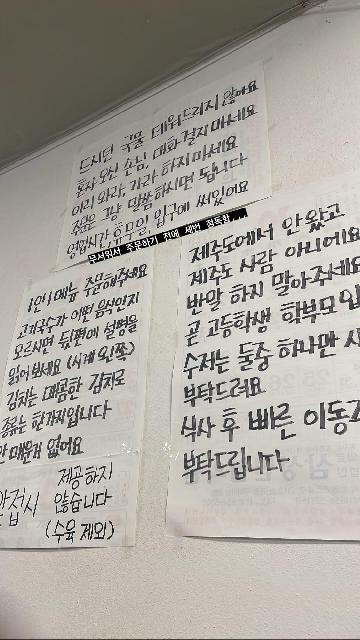 드시던 국물 데워드리지 않아요
혼자 오신 손님, 대화 걸지 마세요
이리 와라, 가라 하지마세요
주문은 그냥 말씀하시면 됩니다
영업시간, 휴무일 입구에 써있어요
무서워서 주문하기 전에 세번 정독함...
1인 1메뉴 주문해주세요
고기국수가 어떤 음식인지
모르시면 뒷편에 설명을
읽어보세요 (시계 왼쪽)
김치는 매콤한 김치로
종류는 한가지입니다
안 매운거 없어요
앞접시 제공하지
않습니다
(수육 제외)
제주도에서 안 왔고
제주도 사람 아니에요
반말 하지 말아주세요
곧 고등학생 학부모입
수저는 둘중 하나만 사
부탁드려요
식사 후 빠른 이동
부탁드립니다